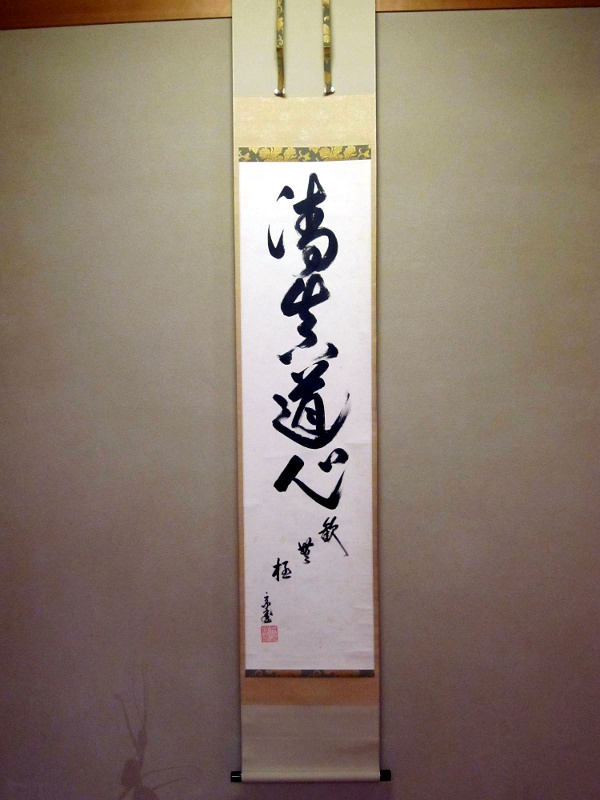 清真道心
歓無極